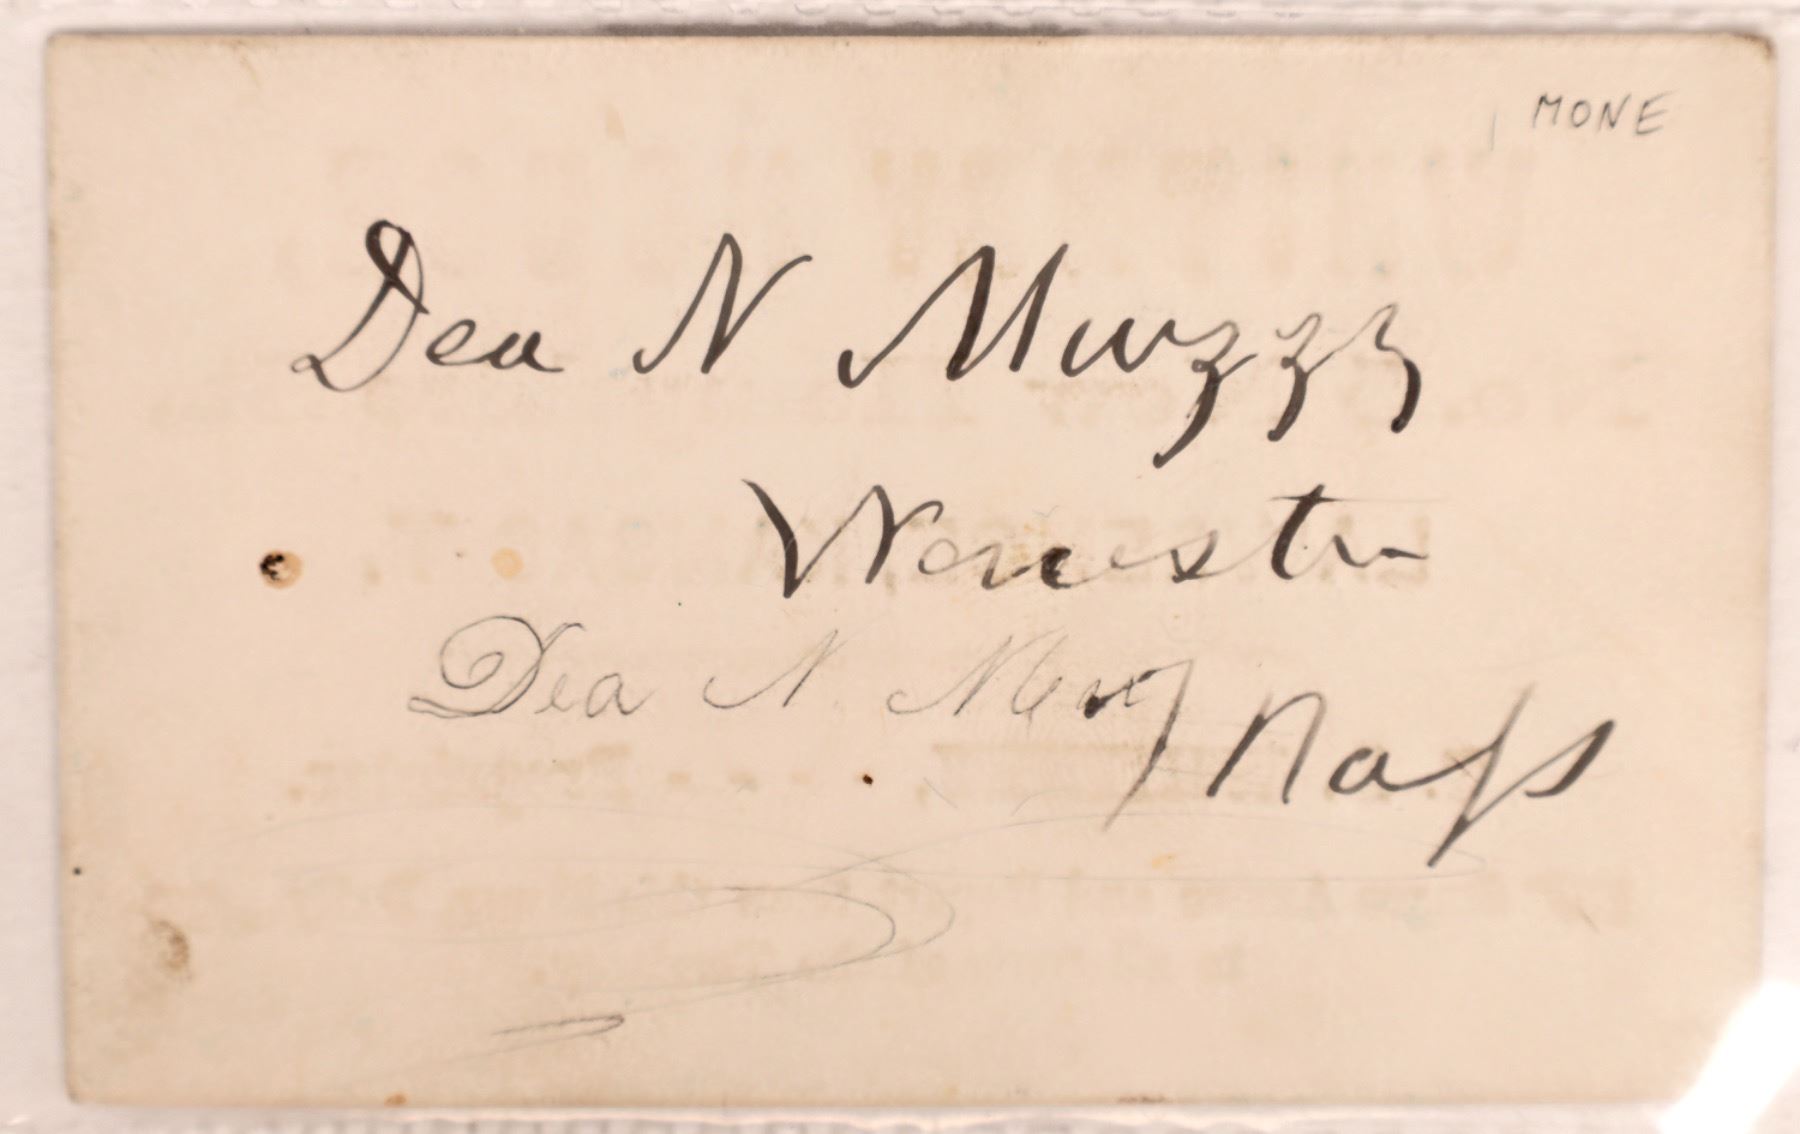 MONE
Dea N Muzzy
Worcester
Dea N. Muz
Mass